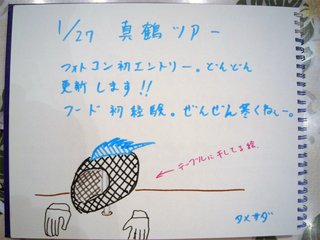 1/27 真鶴ツアー
フォトコン初エントリー。どんどん
更新します!!
フード初経験。ぜんぜん寒くねぇー。
テーブルに干してる絵